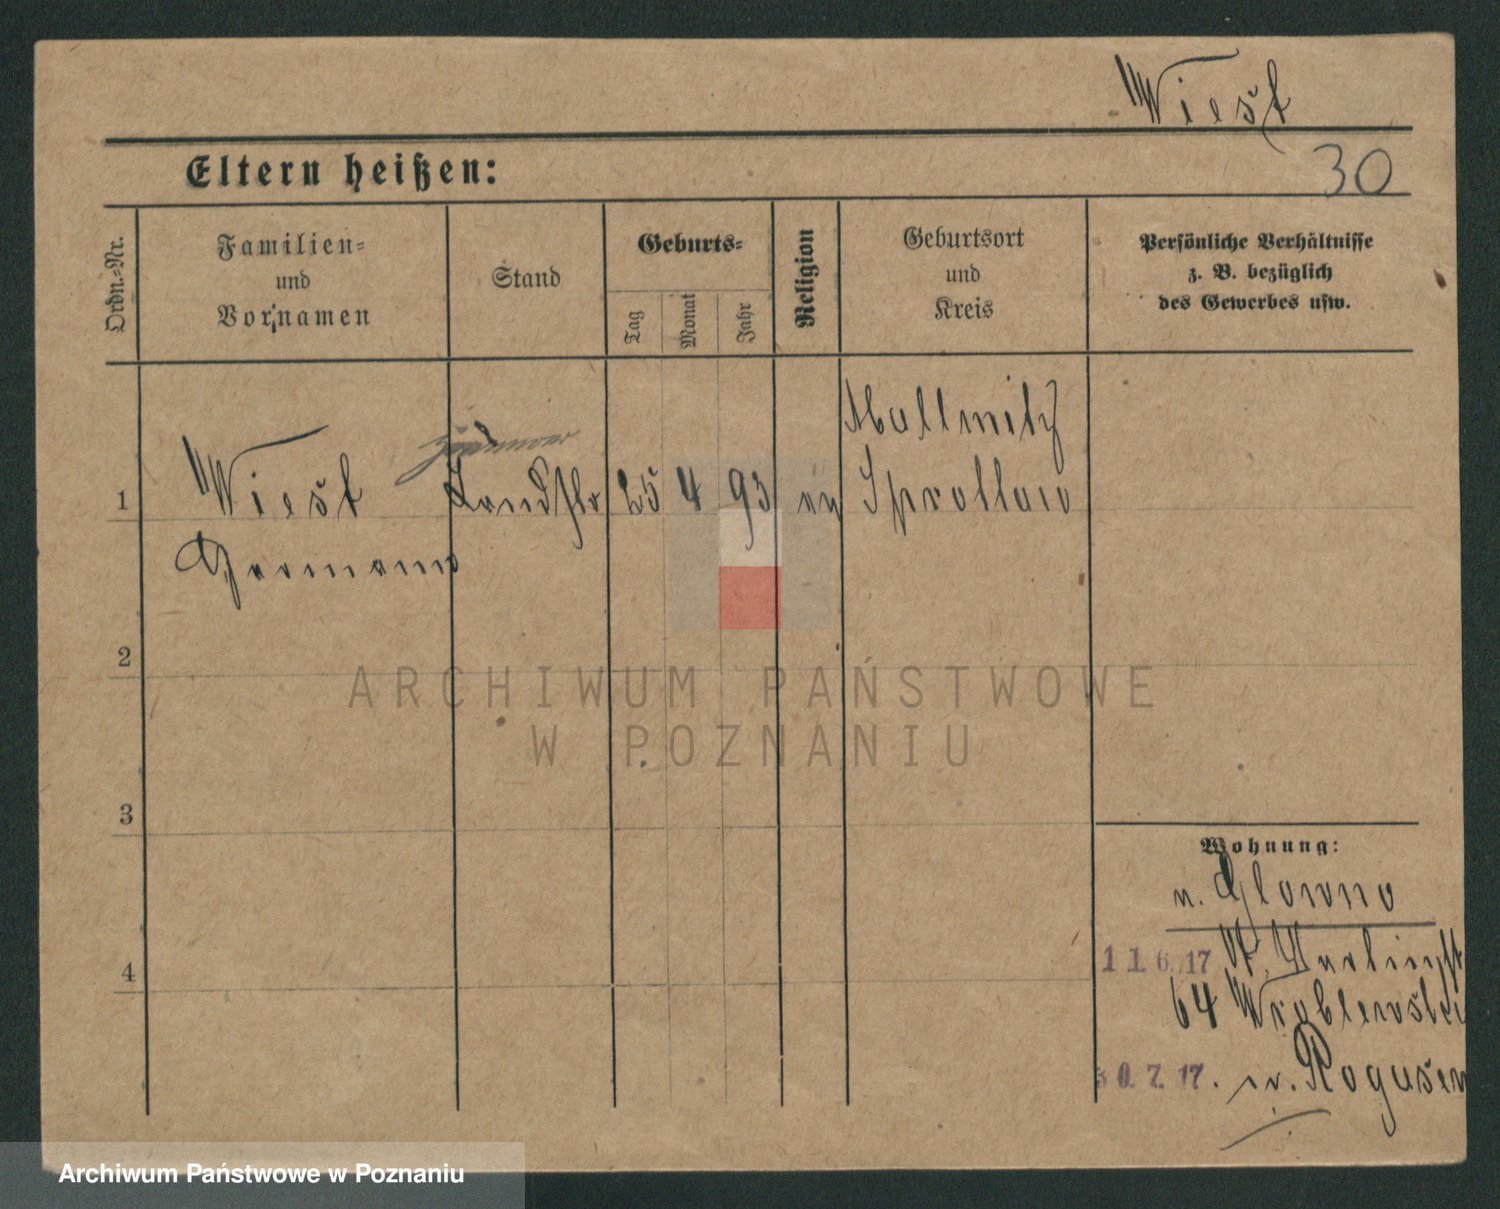 Wiest
Eltern heißen:
30
Ordn.-Nr.
Familien-
und
Vornamen
Stand
Geburts-
Tag
Monat
Jahr
Religion
Geburtsort
und
Kreis
Persönliche Verhältnisse
z. B. bezüglich
des Gewerbes usw.
1
Wiest
Hermann
25
4
93
ev
Mallmitz
Sprottau
2
3
4
Wohnung:
n. Glowno
11. 6. 17
64 Wroblewski
30. 7. 17. n. Rogasen
ARCHIWUM PAŃSTWOWE
W POZNANIU
Archiwum Państwowe w Poznaniu